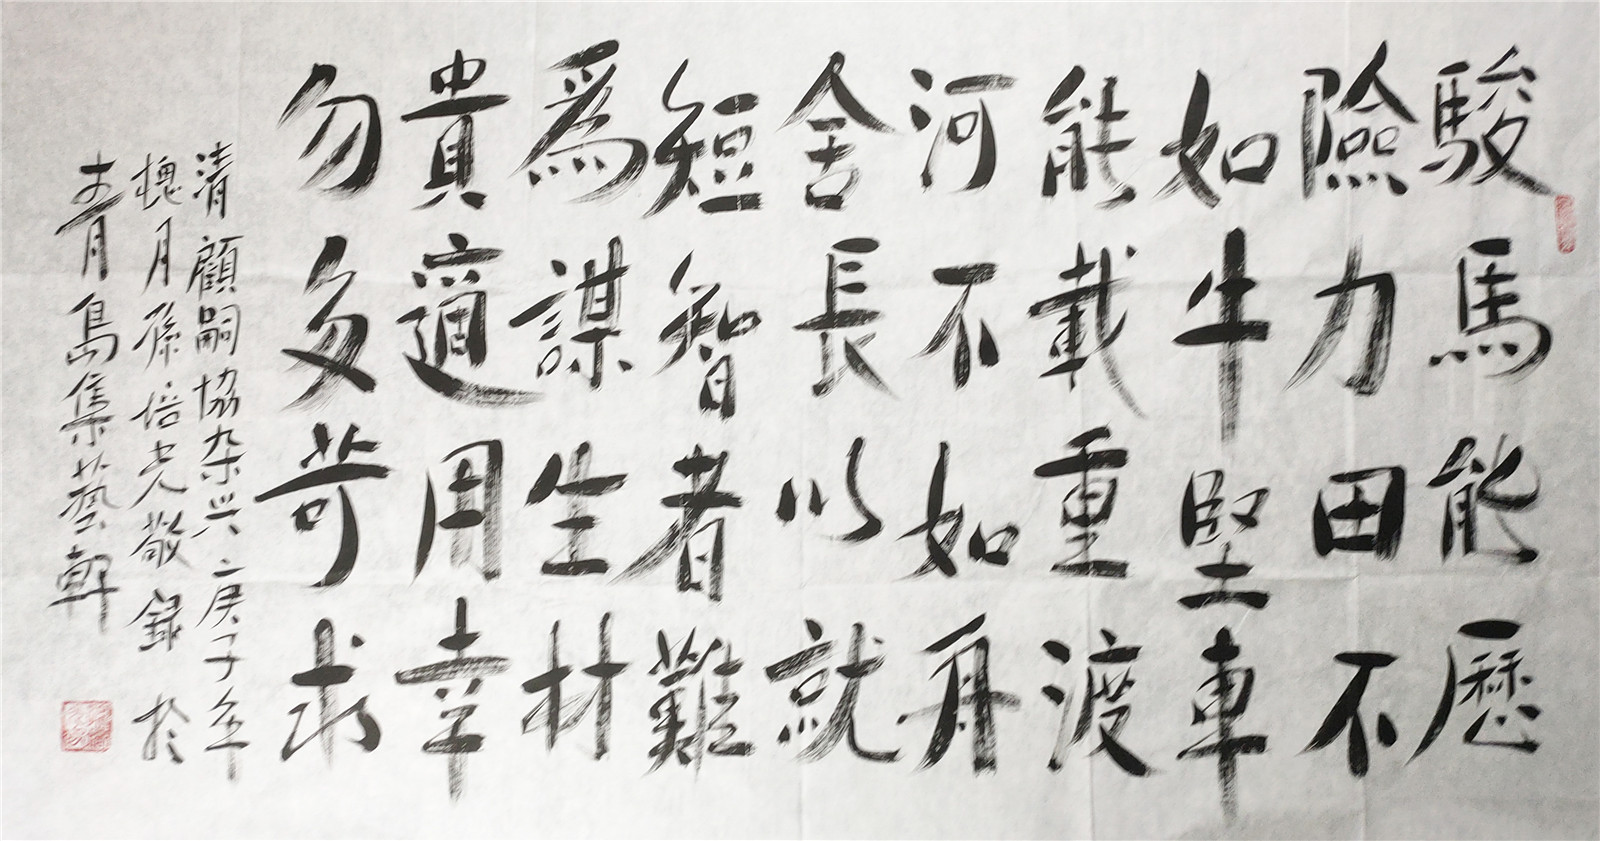 駿馬能歷
險力田不
如牛堅車
能載重渡
河不如舟
舍長以就
短智者難
爲謀生材
貴適用幸
勿多苛求
清顧嗣協杂兴庚子年
槐月孫培光敬録於
青島集藝軒